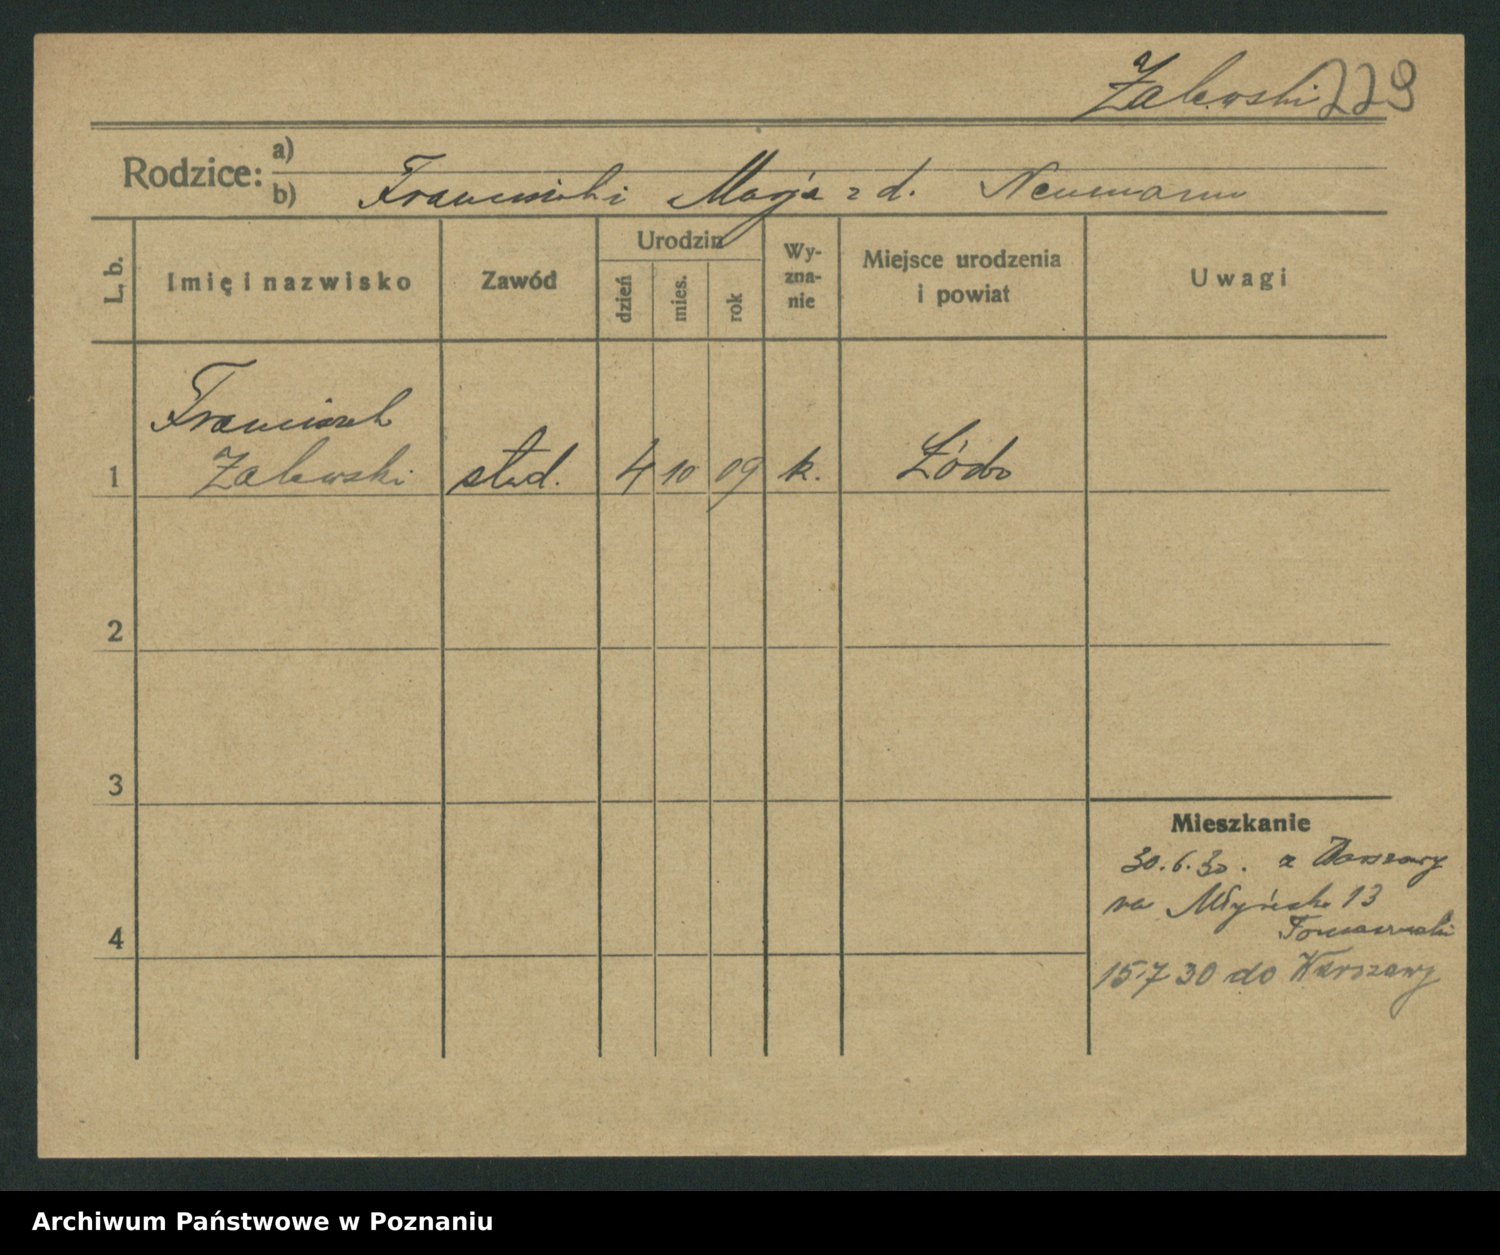 Zalewski 229
Rodzice: a)
b) Franciszek i Marja z d. Neumann
L. b.
Imię i nazwisko
Zawód
Urodzin
dzień
mies.
rok
Wy-
zna-
nie
Miejsce urodzenia
i powiat
Uwagi
Franciszek
1 Zalewski stud. 4 10 09 k. Łódź
2
3
Mieszkanie
30.6.30. z Warszawy
na Młyńska 13
4
15.7 30 do Warszawy
Archiwum Państwowe w Poznaniu